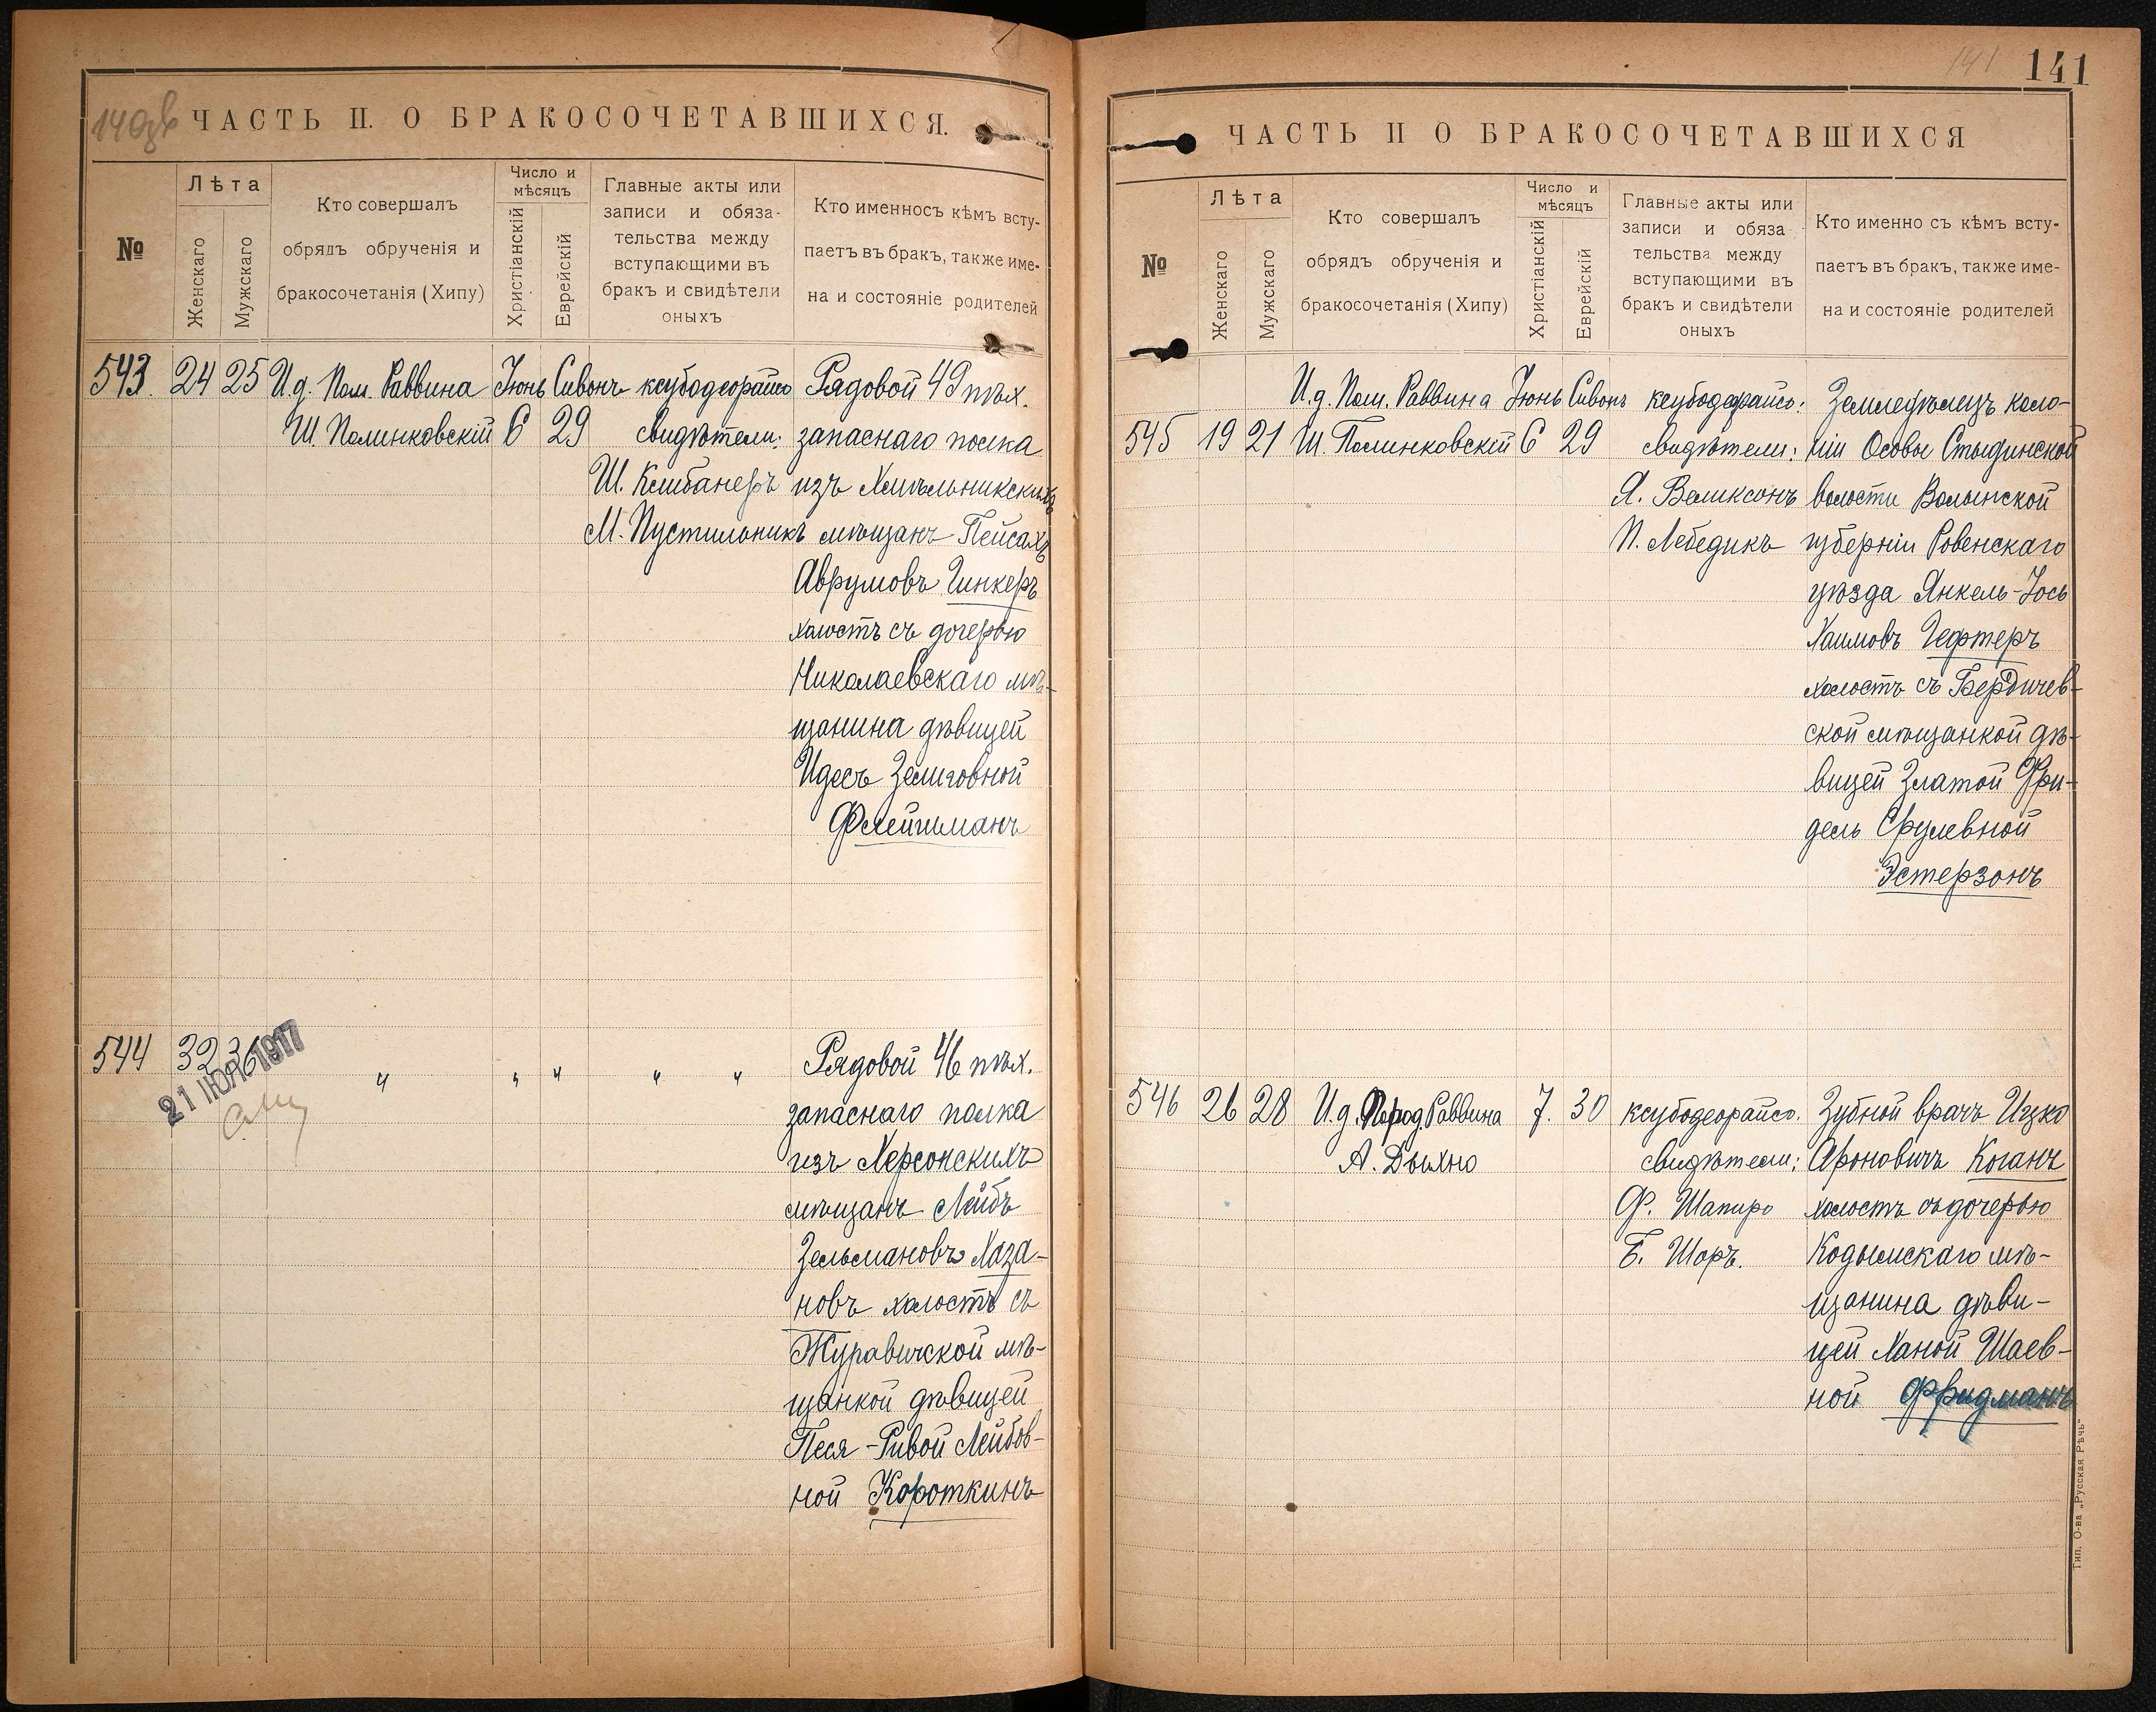 140зв
ЧАСТЬ II. О БРАКОСОЧЕТАВШИХСЯ.
№
Лѣта
Женскаго
Мужскаго
Кто совершалъ
обрядъ обрученія и
бракосочетанія (Хипу)
Число и
мѣсяцъ
Христіанскій
Еврейскій
Главные акты или
записи и обяза-
тельства между
вступающими въ
бракъ и свидѣтели
оныхъ
Кто именносъ кѣмъ всту-
паетъ въ бракъ, также име-
на и состояніе родителей
543. 24 25 И.д. Пом. Раввина Іюнь Сивонъ ксубодеорайсо Рядовой 49 пѣх.
Ш. Полинковскій 6 29 свидѣтели: запаснаго полка
Ш. Клибанеръ изъ Хмѣльникскихъ
М. Пустильникъ мѣщанъ Пейсахъ
Аврумовъ Гинкеръ
холостъ съ дочерью
Николаевскаго мѣ-
щанина дѣвицей
Идесъ Зелиговной
Флейшманъ
544 32 36 " " " " " Рядовой 46 пѣх.
21 ИЮЛ 1917
запаснаго полка
изъ Херсонскихъ
мѣщанъ Лейбъ
Зельмановъ Хаза-
новъ холостъ съ
Журавичской мѣ-
щанкой дѣвицей
Песя-Ривой Лейбов-
ной Короткинъ
141 141
ЧАСТЬ II О БРАКОСОЧЕТАВШИХСЯ
№
Лѣта
Женскаго
Мужскаго
Кто совершалъ
обрядъ обрученія и
бракосочетанія (Хипу)
Число и
мѣсяцъ
Христіанскій
Еврейскій
Главные акты или
записи и обяза
тельства между
вступающими въ
бракъ и свидѣтели
оныхъ
Кто именно съ кѣмъ всту-
паетъ въ бракъ, также име-
на и состояніе родителей
И.д. Пом. Раввина Іюнь Сивонъ ксубодеорайсо: Земледѣлецъ коло-
545 19 21 Ш. Полинковскій 6 29 свидѣтели: ніи Осовы Стыдинской
Я. Великсонъ волости Волынской
П. Лебедикъ губерніи Ровенскаго
уѣзда Янкель-Іось
Хаимовъ Гефтеръ
холостъ съ Бердичев-
ской мѣщанкой дѣ-
вицей Златой Фри-
дель Срулевной
Эстерзонъ
546 26 28 И.д. Город. Раввина 7. 30 ксубодеорайсо. Зубной врачъ Ицко
А. Дыхно свидѣтели: Ароновичъ Коганъ
Ф. Шапиро холостъ съ дочерью
Б. Шоръ. Кодымскаго мѣ-
щанина дѣви-
цей Ханой Шаев-
ной Фридманъ
Тип. О-ва „Русская Рѣчь“